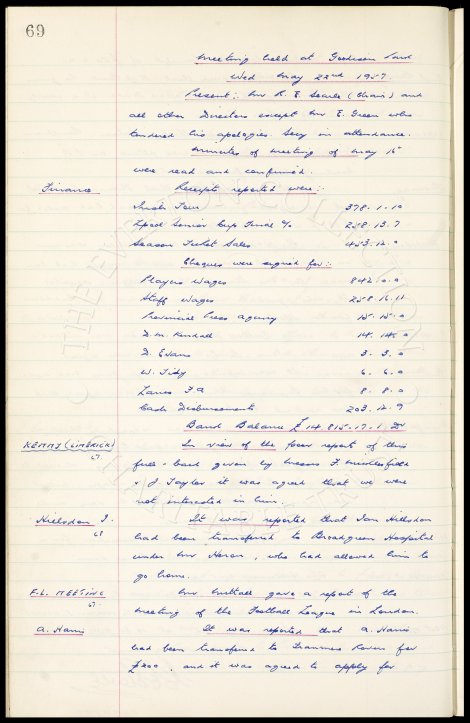 69
Meeting held at Goodison Park
Wed May 22nd 1957.
Present:- Mr R. E. Searle (Chair) and
all other Directors except Mr E. Green who
tendered his apologies. Secy in attendance.
Minutes of meeting of May 15
were read and confirmed.
Finance
Receipts reported were:-
Irish Tour 378.1.10
Lpool Senior Cup Final % 258.13.7
Season Ticket Sales 453.12.0
Cheques were signed for:-
Players Wages 842.0.0
Staff Wages 258.16.11
Provincial Press Agency 15.15.0
D. M. Kendall 14.14.0
D. Evans 3.3.0
W. Tidy 6.6.0
Lancs F A 8.8.0
Cash Disbursements 203.12.9
Bank Balance £14815.17.1 Dr
KENNY (LIMERICK)
67.
In view of the poor report of this
full-back given by Messrs F.
& J Taylor it was agreed that we were
not interested in him.
Hillsdon I.
68
It was reported that Ian Hillsdon
had been transferred to Broadgreen Hospital
under Mr Heron, who had allowed him to
go home.
F.L. MEETING
67.
Mr gave a report of the
meeting of the Football League in London.
A. Harris
It was reported that A. Harris
had been transferred to Tranmere Rovers for
£200, and it was agreed to apply for
THE EVERTON COLLECTION